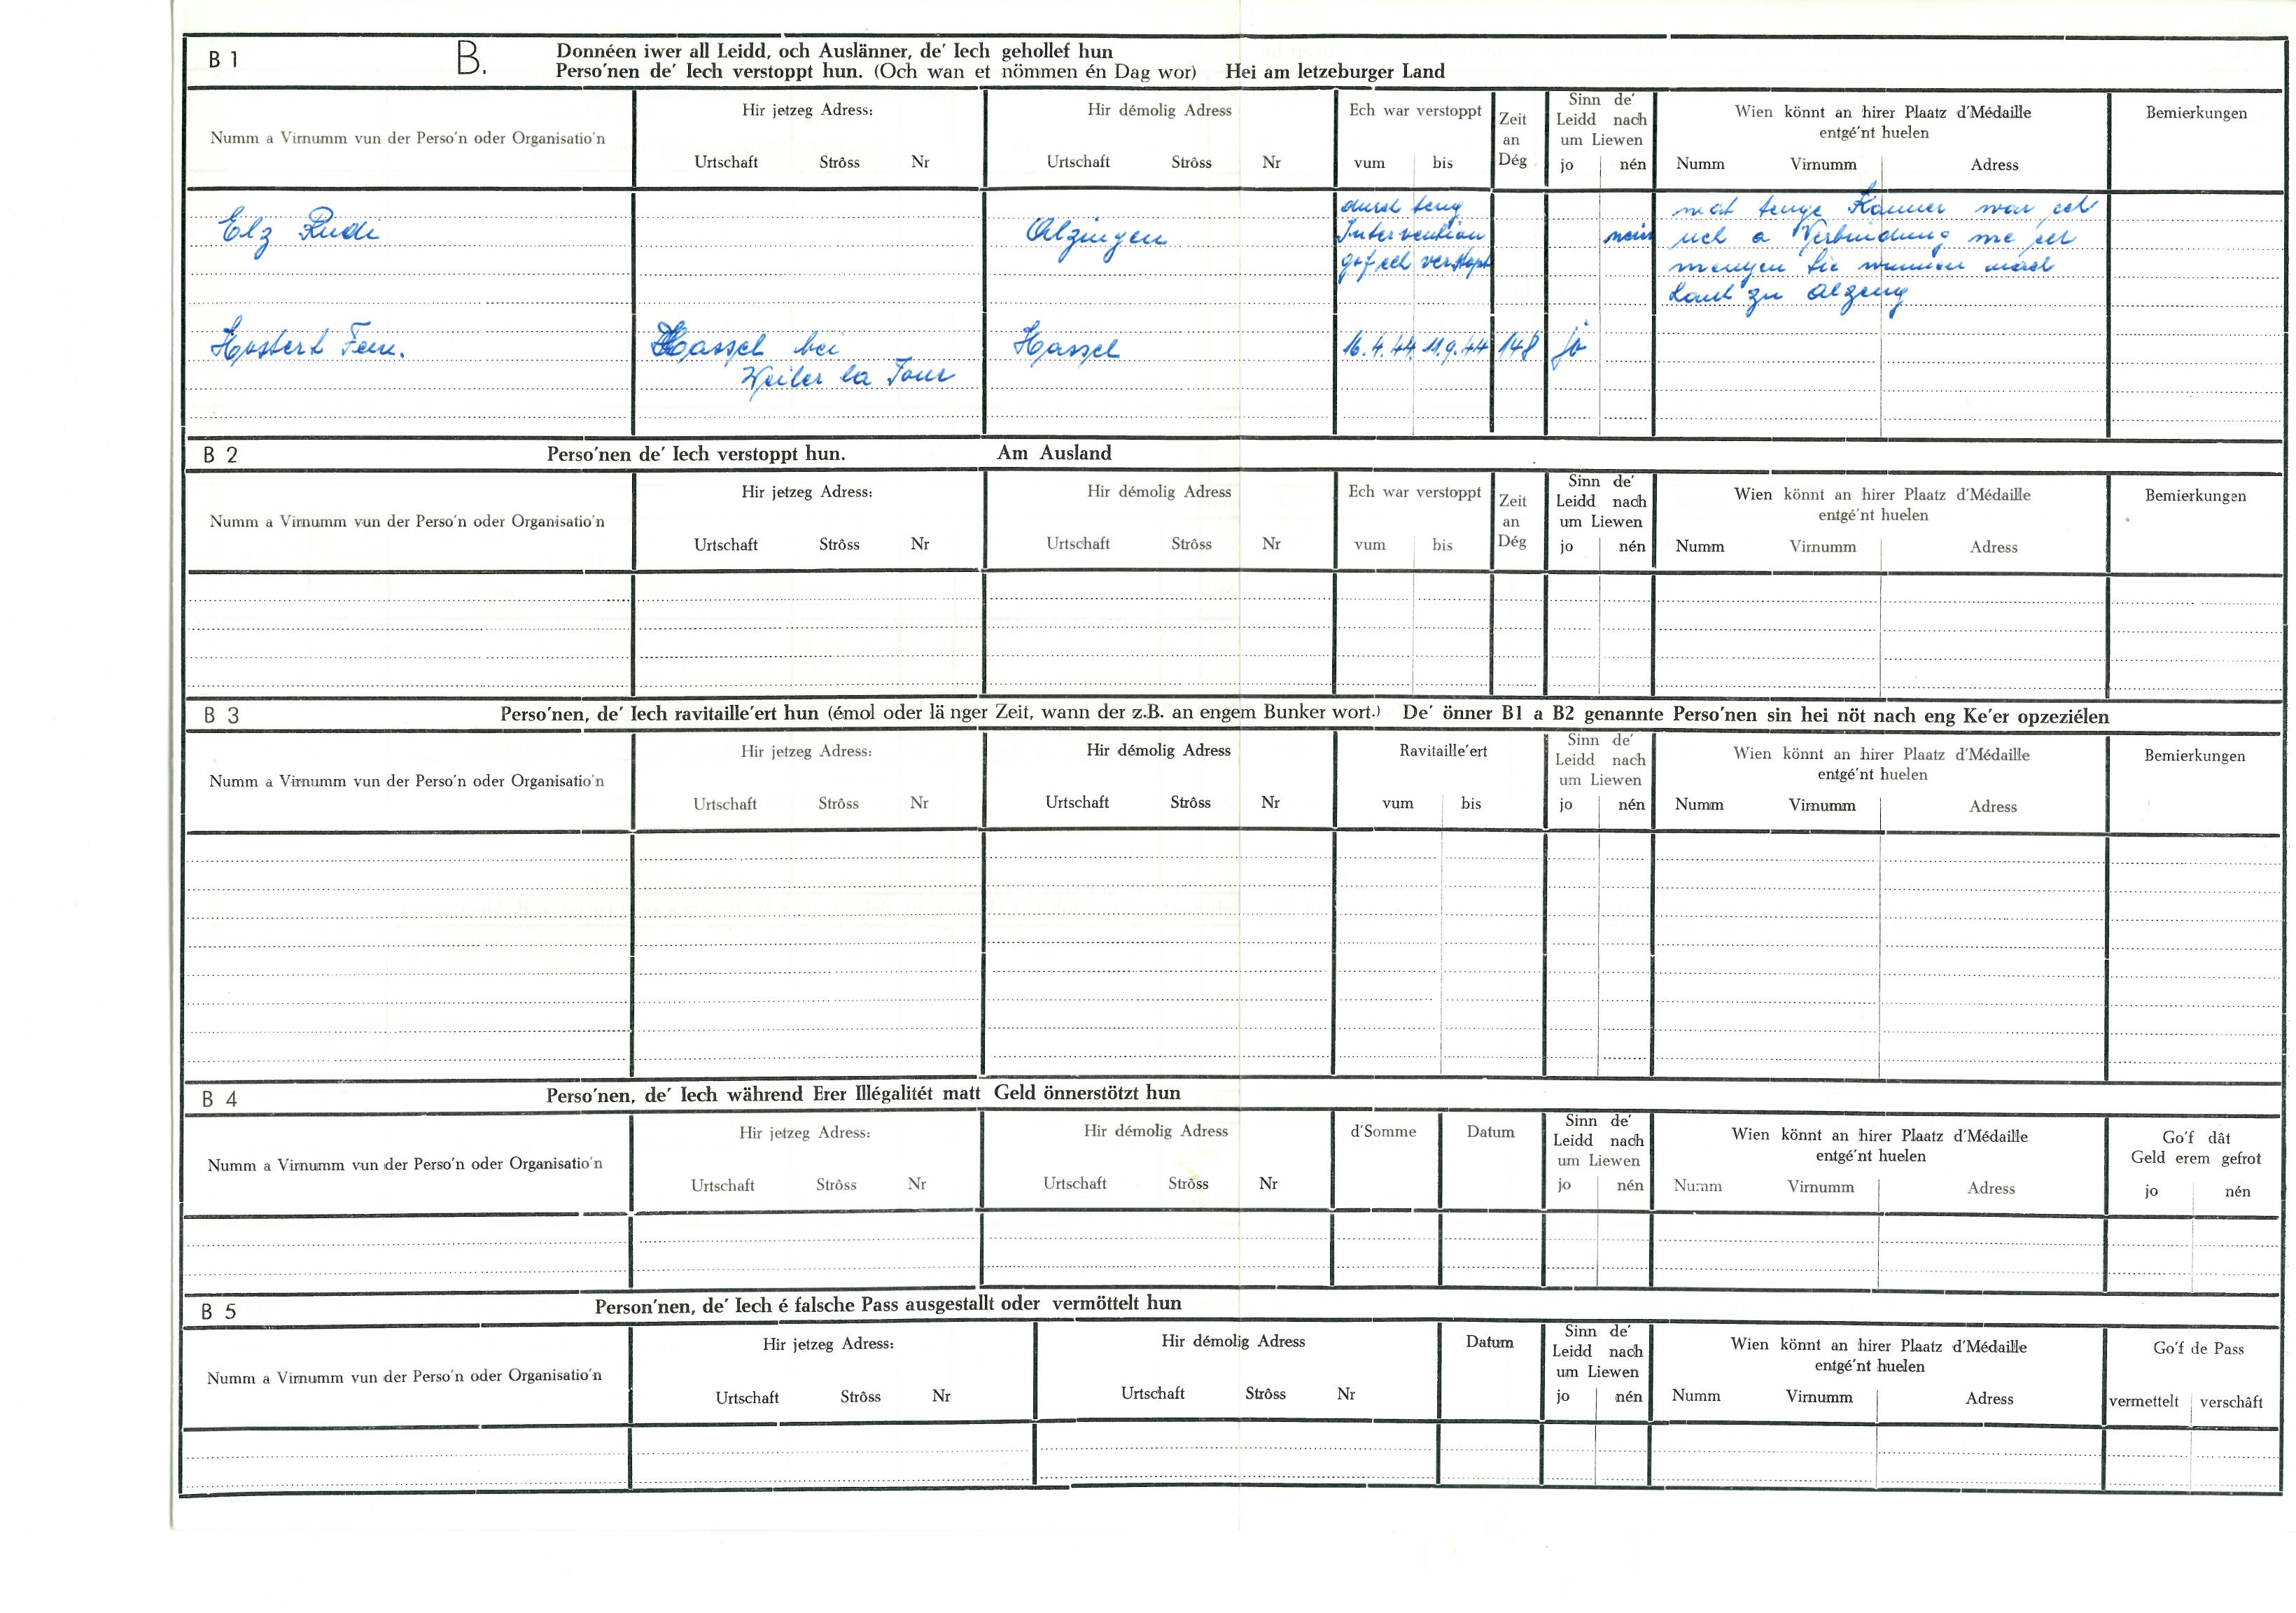 B 1
B.
Donnéen iwer all Leidd, och Auslänner, de' Iech gehollef hun
Perso'nen de' Iech verstoppt hun. (Och wan et nömmen én Dag wor) Hei am letzeburger Land
Numm a Virnumm vun der Perso'n oder Organisatio'n
Hir jetzeg Adress:
Urtschaft Strôss Nr
Hir démolig Adress
Urtschaft Strôss Nr
Ech war verstoppt
vum bis
Zeit
an
Dég
Sinn de'
Leidd nach
um Liewen
jo nén
Wien könnt an hirer Plaatz d'Médaille
entgé'nt huelen
Numm Virnumm Adress
Bemierkungen
Elz Rudi
Alzingen
durch seng
Intervention
gof ech verstopt
nein
mat senge Kanner war ech
och a Verbindung me ech
mengen sie wunnen
zu Alzeng
Hostert Fern.
Hassel bei
Weiler la Tour
Hassel
16.4.44 11.9.44 148 jo
B 2
Perso'nen de' Iech verstoppt hun. Am Ausland
Numm a Virnumm vun der Perso'n oder Organisatio'n
Hir jetzeg Adress:
Urtschaft Strôss Nr
Hir démolig Adress
Urtschaft Strôss Nr
Ech war verstoppt
vum bis
Zeit
an
Dég
Sinn de'
Leidd nach
um Liewen
jo nén
Wien könnt an hirer Plaatz d'Médaille
entgé'nt huelen
Numm Virnumm Adress
Bemierkungen
B 3
Perso'nen, de' Iech ravitaille'ert hun (émol oder lä nger Zeit, wann der z.B. an engem Bunker wort.) De' önner B1 a B2 genannte Perso'nen sin hei nöt nach eng Ke'er opzeziélen
Numm a Virnumm vun der Perso'n oder Organisatio'n
Hir jetzeg Adress:
Urtschaft Strôss Nr
Hir démolig Adress
Urtschaft Strôss Nr
Ravitaille'ert
vum bis
Sinn de'
Leidd nach
um Liewen
jo nén
Wien könnt an hirer Plaatz d'Médaille
entgé'nt huelen
Numm Virnumm Adress
Bemierkungen
B 4
Perso'nen, de' Iech während Erer Illégalitét matt Geld önnerstötzt hun
Numm a Virnumm vun der Perso'n oder Organisatio'n
Hir jetzeg Adress:
Urtschaft Strôss Nr
Hir démolig Adress
Urtschaft Strôss Nr
d'Somme
Datum
Sinn de'
Leidd nach
um Liewen
jo nén
Wien könnt an hirer Plaatz d'Médaille
entgé'nt huelen
Numm Virnumm Adress
Go'f dât
Geld erem gefrot
jo nén
B 5
Person'nen, de' Iech é falsche Pass ausgestallt oder vermöttelt hun
Numm a Virnumm vun der Perso'n oder Organisatio'n
Hir jetzeg Adress:
Urtschaft Strôss Nr
Hir démolig Adress
Urtschaft Strôss Nr
Datum
Sinn de'
Leidd nach
um Liewen
jo nén
Wien könnt an hirer Plaatz d'Médaille
entgé'nt huelen
Numm Virnumm Adress
Go'f de Pass
vermettelt verschâft